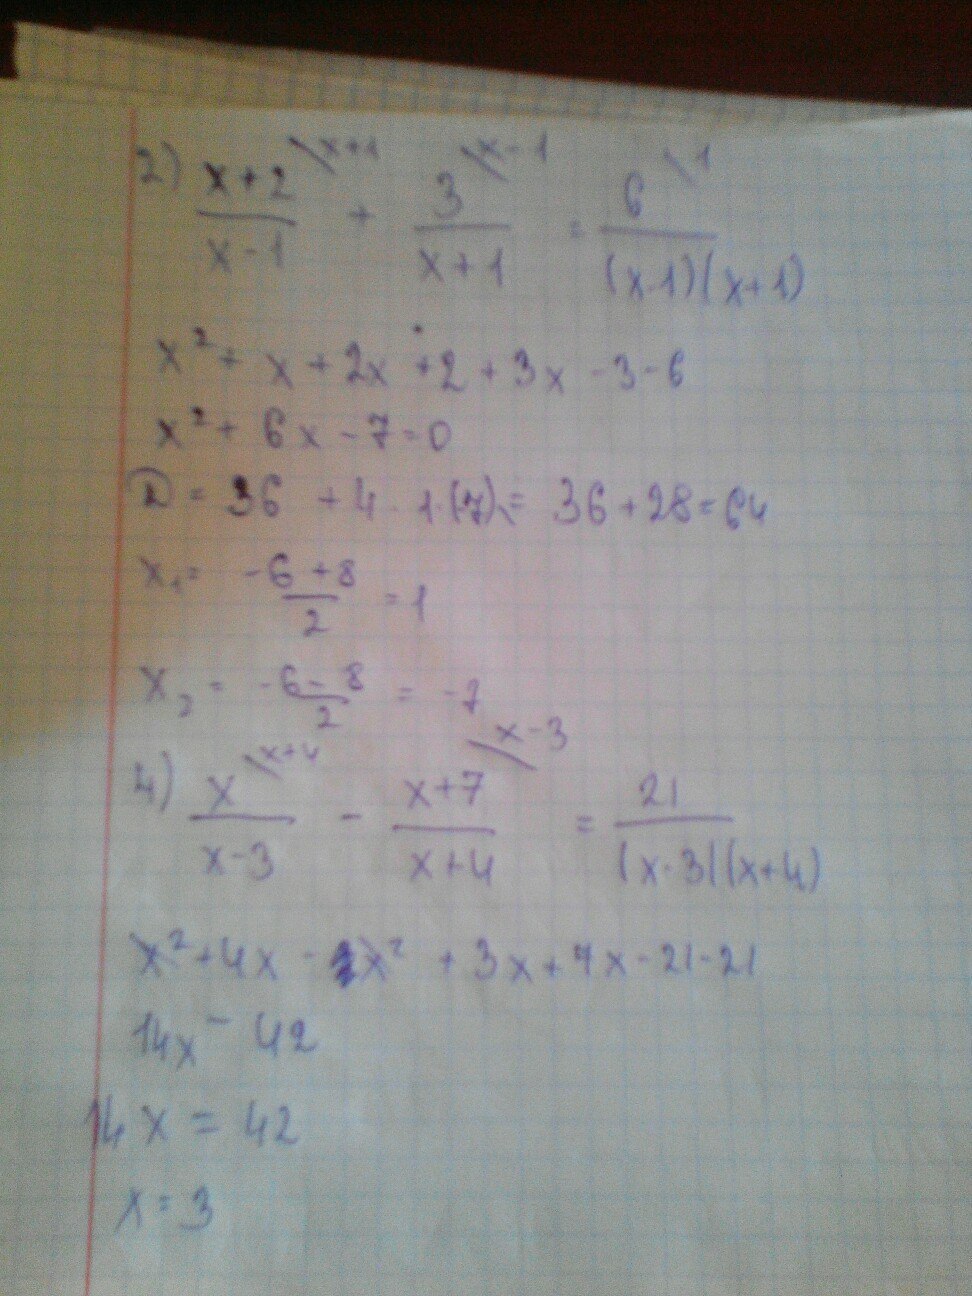 2) x+2/x-1 \x+1 + 3/x+1 \x-1 = 6/(x-1)(x+1) \1
x²+ x + 2x + 2 + 3x - 3 - 6
x² + 6x - 7 = 0
D = 36 + 4 · 1 · (-7) = 36 + 28 = 64
x₁ = -6 + 8/2 = 1
x₂ = -6 - 8/2 = -7
4) x/x-3 \x+4 - x+7/x+4 \x-3 = 21/(x-3)(x+4)
x² + 4x - x² + 3x + 7x - 21 - 21
14x - 42
14x = 42
x = 3